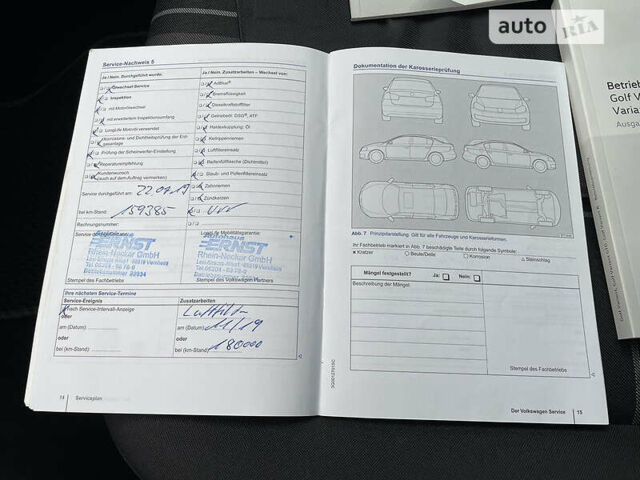 auto RIA
Service-Nachweis 5
Ja / Nein. Durchgeführt wurde:
Ja / Nein. Zusatzarbeiten – Wechsel von:
Ölwechsel-Service
AdBlue®
Inspektion
Bremsflüssigkeit
mit Motorölwechsel
Dieselkraftstofffilter
mit erweitertem Inspektionsumfang
Getriebeöl: DSG®, ATF
LongLife Motoröl verwendet
Haldexkupplung: Öl
Korrosions- und Dichtheitsprüfung der Erdgasanlage
Keilrippenriemen
Luftfiltereinsatz
Prüfung der Scheinwerfer-Einstellung
Reifenfüllflasche (Dichtmittel)
Reparaturempfehlung
Staub- und Pollenfiltereinsatz
Kundenwunsch
(auch auf dem Auftrag vermerken)
Zahnriemen
Service durchgeführt am: 22.07.19
Zündkerzen
bei km-Stand: 159385
Rechnungsnummer:
Autohaus
ERNST
Rhein-Neckar GmbH
Autohaus
ERNST
Rhein-Neckar GmbH
Stempel des Fachbetriebs
Stempel des Volkswagen Partners
Ihre nächsten Service-Termine
Service-Ereignis
Zusatzarbeiten
nach Service-Intervall-Anzeige
oder
am (Datum):
am (Datum): 11/19
oder
oder
bei (km-Stand):
bei (km-Stand): 180000
14 Serviceplan
Dokumentation der Karosserieprüfung
Abb. 7 Prinzipdarstellung. Gilt für alle Fahrzeuge und Karosserieformen.
Ihr Fachbetrieb markiert in Abb. 7 beschädigte Teile durch folgende Symbole:
× Kratzer
○ Beule/Delle
□ Korrosion
△ Steinschlag
Mängel festgestellt?
Ja:
Nein:
Beschreibung der Mängel:
Stempel des Fachbetriebs
Der Volkswagen Service 15
Betrieb
Golf V
Varia
Ausga